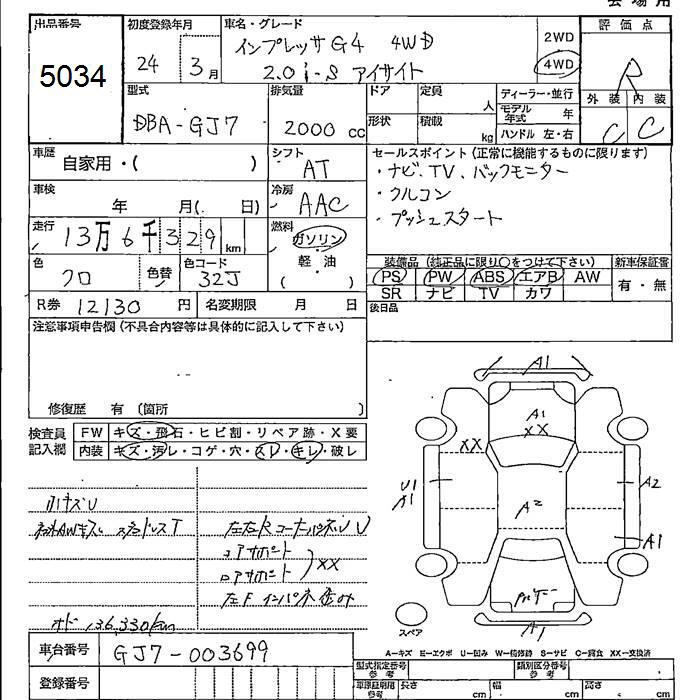 会場用
出品番号
5034
初度登録年月
24 3月
車名・グレード
インプレッサG4 4WD
2.0i-S アイサイト
2WD
4WD
評価点
R
外装 内装
C C
型式
DBA-GJ7
排気量
2000 cc
ドア 定員 人
形状 積載 kg
ディーラー・並行
モデル年式 年
ハンドル 左・右
車歴
自家用・( )
シフト
AT
セールスポイント(正常に機能するものに限ります)
・ナビ、TV、バックモニター
・クルコン
・プッシュスタート
車検
年 月( 日)
冷房
AAC
走行
13万6千329km
燃料
ガソリン
軽・油
( )
色
クロ
色替
色コード
32J
装備品(純正品に限り○をつけて下さい)
PS PW ABS エアB AW
SR ナビ TV カワ
新車保証書
有・無
R券 12130 円
名変期限 月 日
後日品
注意事項申告欄(不具合内容等は具体的に記入して下さい)
修復歴 有〔箇所 〕
検査員
記入欄
FW キズ・飛石・ヒビ割・リペア跡・X要
内装 キズ・汚レ・コゲ・穴・スレ・キレ・破レ
A1
A1
XX
XX
U1
A1
A2
A2
A1
A1
スペア
小キズU
スタッドレスT
左右Rコーナーパネル U
コアサポート
ロアサポート
XX
左Fインパネ
オド 136,330km
A-キズ E-エクボ U-凹み W-補修跡 S-サビ C-腐食 XX-交換済
車台番号
GJ7-003699
登録番号
型式指定番号 参考
類別区分番号 参考
車原証明用 参考
長さ cm 幅 cm 高さ cm